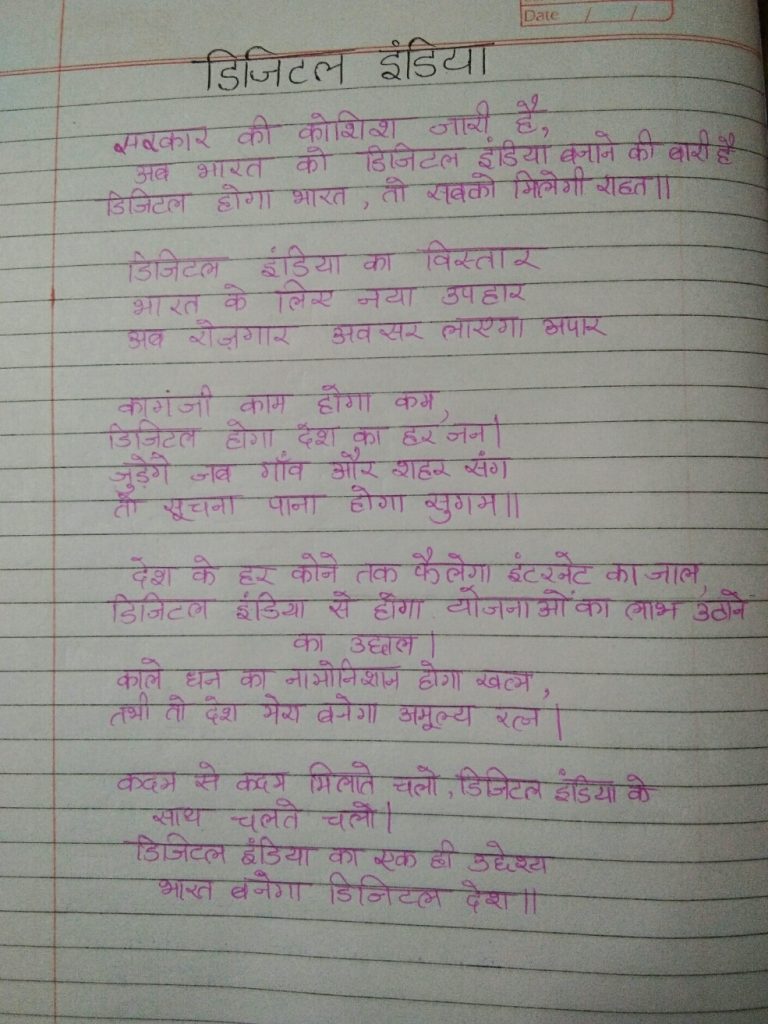 Date / /
डिजिटल इंडिया
सरकार की कोशिश जारी है,
अब भारत को डिजिटल इंडिया बनाने की बारी है
डिजिटल होगा भारत, तो सबको मिलेगी राहत॥
डिजिटल इंडिया का विस्तार
भारत के लिए नया उपहार
अब रोज़गार अवसर लाएगा अपार
कागंजी काम होगा कम,
डिजिटल होगा देश का हर जन।
जुड़ेगे जब गाँव और शहर संग
तो सूचना पाना होगा सुगम॥
देश के हर कोने तक फैलेगा इंटरनेट का जाल,
डिजिटल इंडिया से होगा योजनाओं का लाभ उठाने
का उछाल।
काले धन का नामोनिशान होगा खत्म,
तभी तो देश मेरा बनेगा अमूल्य रत्न।
कदम से कदम मिलाते चलो, डिजिटल इंडिया के
साथ चलते चलो।
डिजिटल इंडिया का एक ही उद्देश्य
भारत बनेगा डिजिटल देश॥